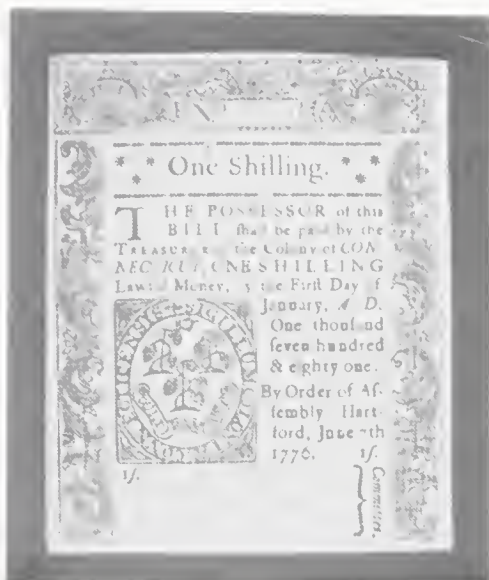 One Shilling.
THE POSSESSOR of this
BILL shall be paid by the
TREASURER the Colony of CON
NEC ICUT, ONE SHILLING
Lawful Money, by the First Day of
January, A. D.
One thousand
seven hundred
& eighty one.
By Order of Af-
sembly Hart-
ford, June 7th
1776. 1s.
1s.
Committee.